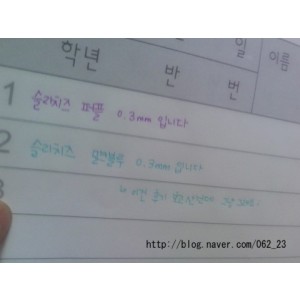 일
학년 반 번 이름
1 슬라치즈 퍼플 0.3mm 입니다
2 슬라치즈 밀키블루 0.3mm 입니다
3
http://blog.naver.com/062_23